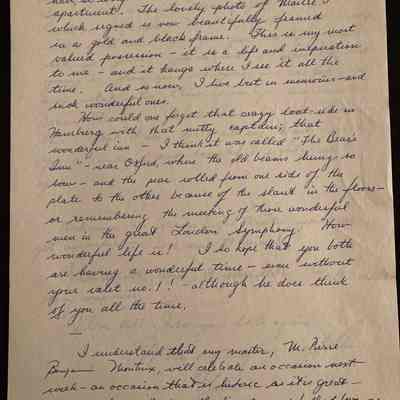 apartment. The lovely photo of Maitre
which signed is now beautifully framed
in a gold and black frame. This is my most
valued possession - it is a lift and inspiration
to me - and it hangs where I see it all the
time. And so now, I live but in memories - and
such wonderful ones.
How could one forget that crazy boat-ride in
Hamburg with that nutty captain; that
wonderful inn - I think it was called "The Bear's
Inn" - near Oxford, where the old beams hung so
low - and the peas rolled from one side of the
plate to the other because of the slant in the floors -
or remembering the meeting of those wonderful
men in the great London Symphony. How
wonderful life is! I do hope that you both
are having a wonderful time - even without
your valet no. 1! - although he does think
of you all the time.
I understand that my master, M. Pierre
Benjamin Monteux, will celebrate an occasion next
week - an occasion that is historic as it is great -